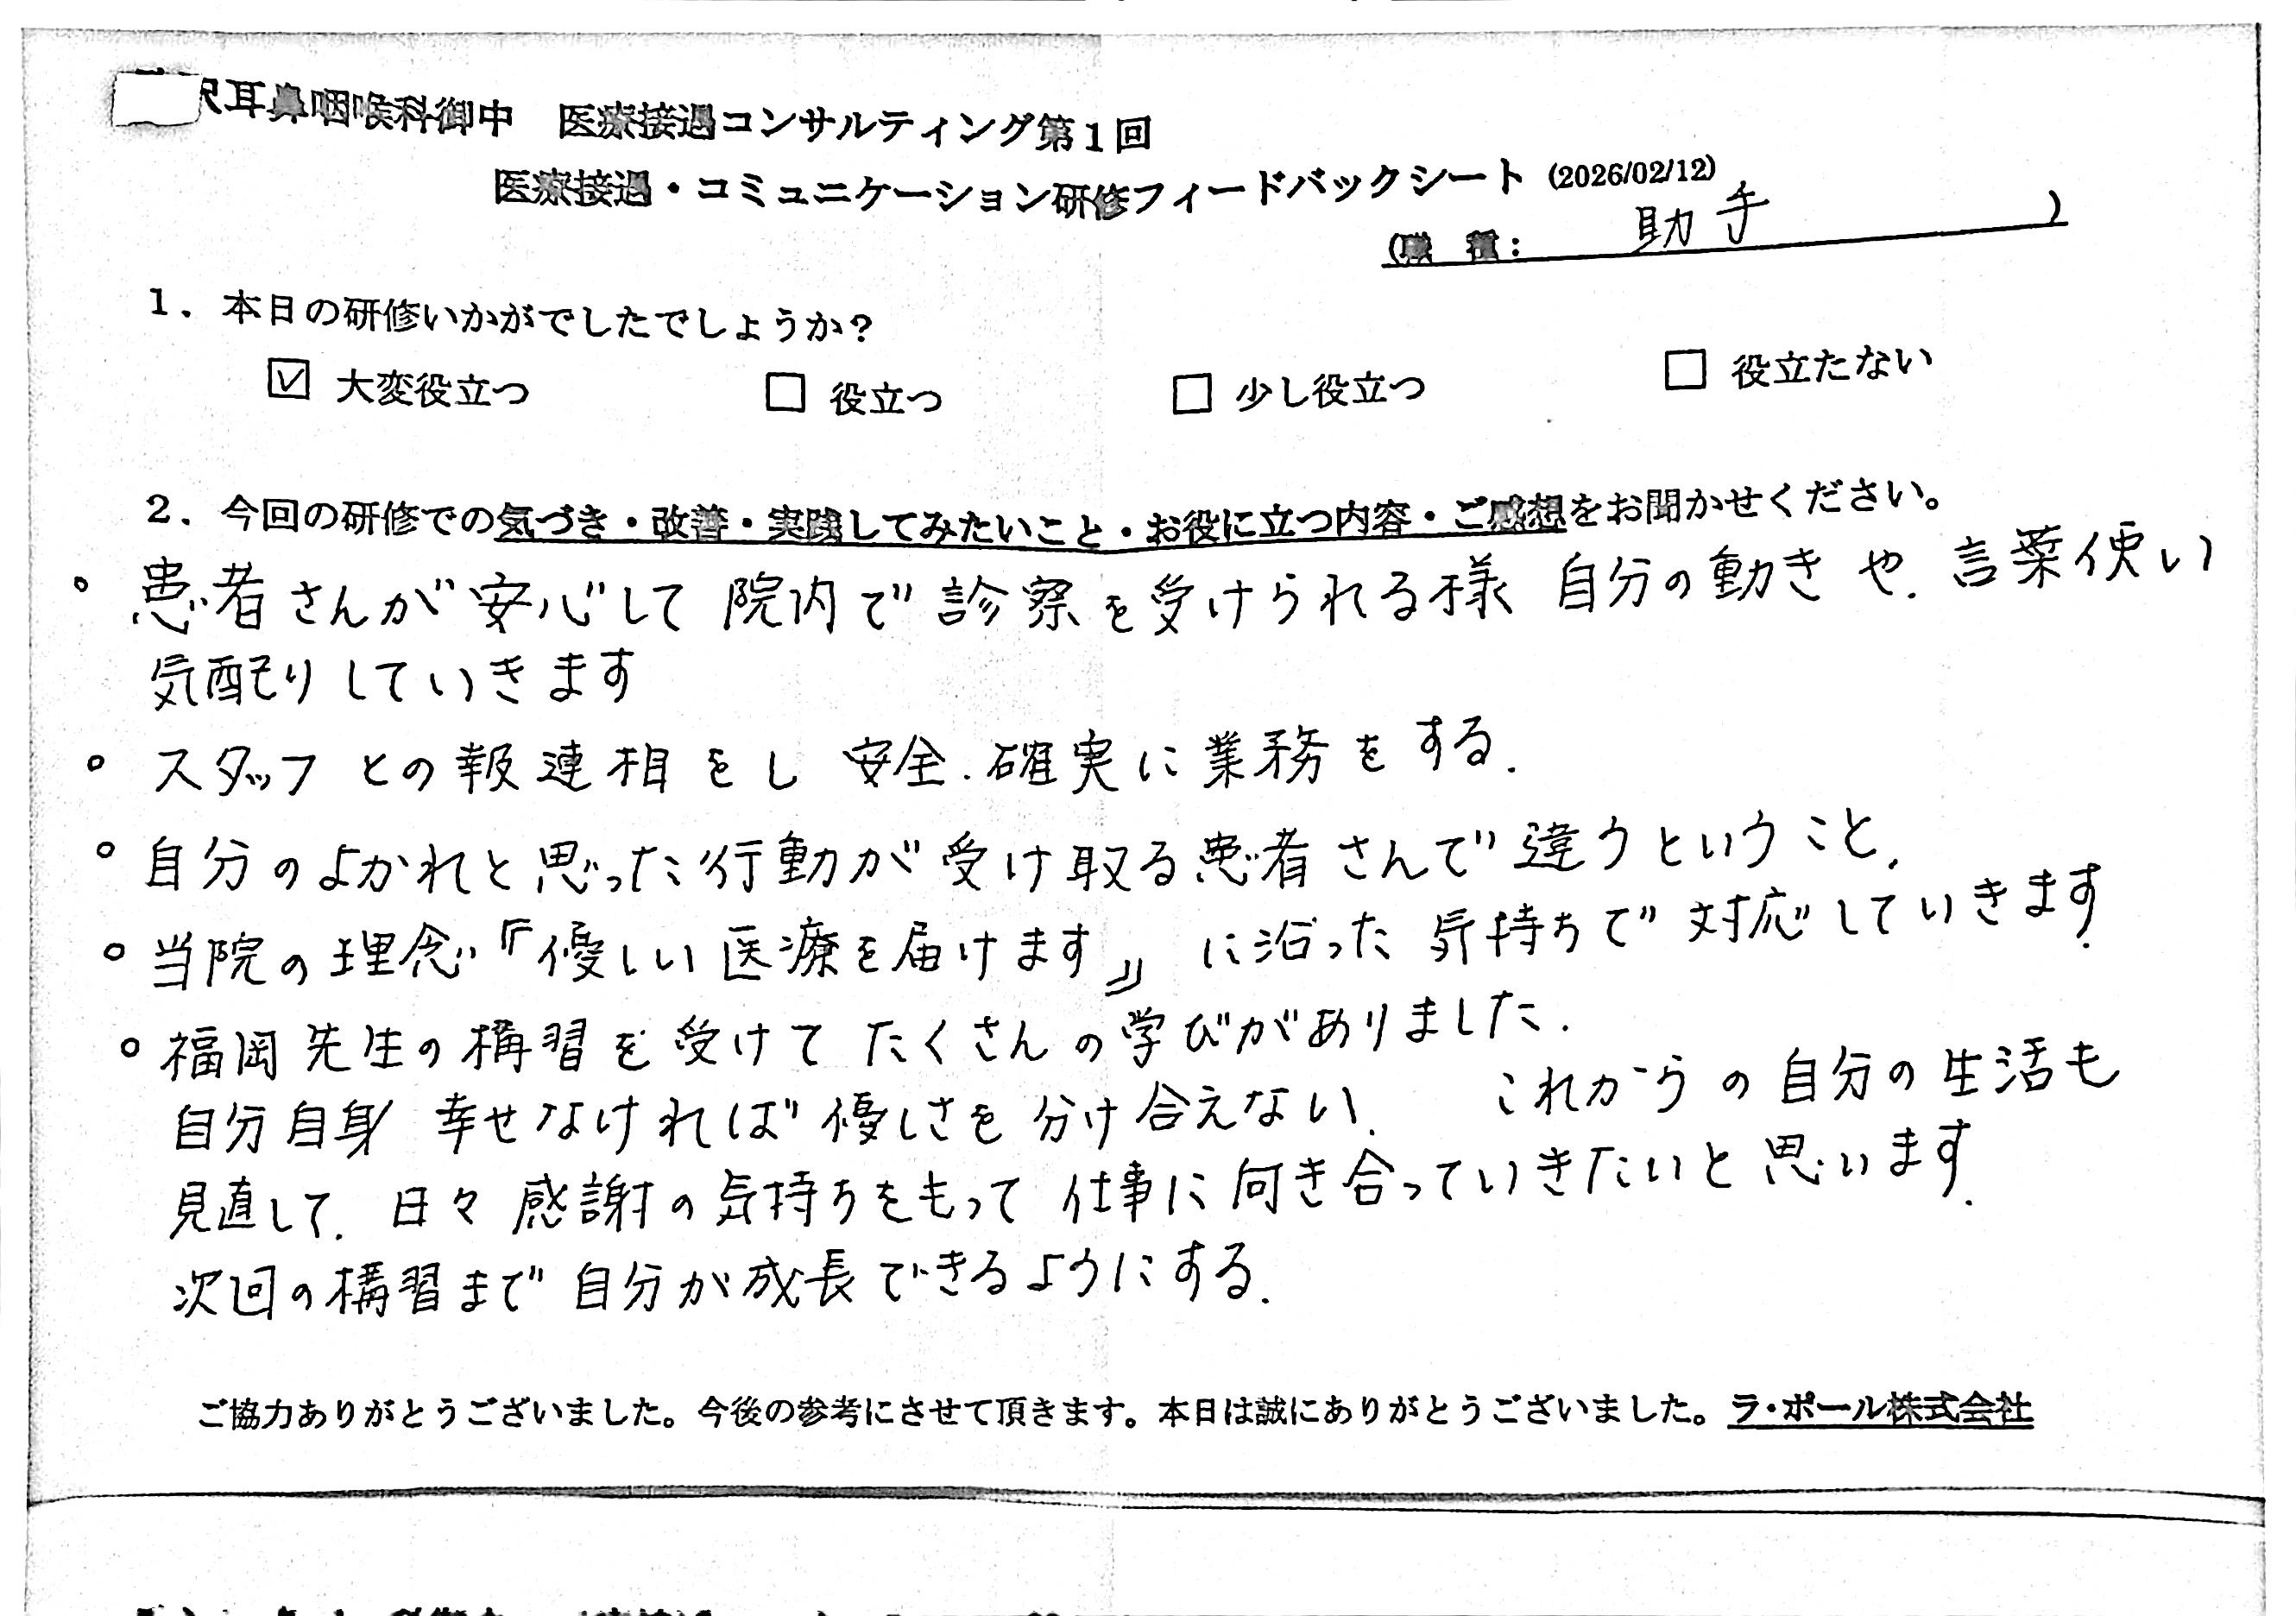 耳鼻咽喉科御中 医療接遇コンサルティング第1回
医療接遇・コミュニケーション研修フィードバックシート (2026/02/12)
(職 種: 助手 )
1. 本日の研修いかがでしたでしょうか?
☑ 大変役立つ □ 役立つ □ 少し役立つ □ 役立たない
2. 今回の研修での気づき・改善・実践してみたいこと・お役に立つ内容・ご感想をお聞かせください。
。患者さんが安心して院内で診察を受けられる様 自分の動きや、言葉使い
気配りしていきます
。スタッフとの報連相をし 安全、確実に業務をする.
。自分のよかれと思った行動が受け取る患者さんで違うということ.
。当院の理念『優しい医療を届けます』に沿った気持ちで対応していきます.
。福岡先生の構習を受けてたくさんの学びがありました.
自分自身 幸せなければ優しさを分け合えない. これからの自分の生活も
見直して、日々感謝の気持ちをもって仕事に向き合っていきたいと思います.
次回の構習まで自分が成長できるようにする.
ご協力ありがとうございました。今後の参考にさせて頂きます。本日は誠にありがとうございました。ラ・ポール株式会社